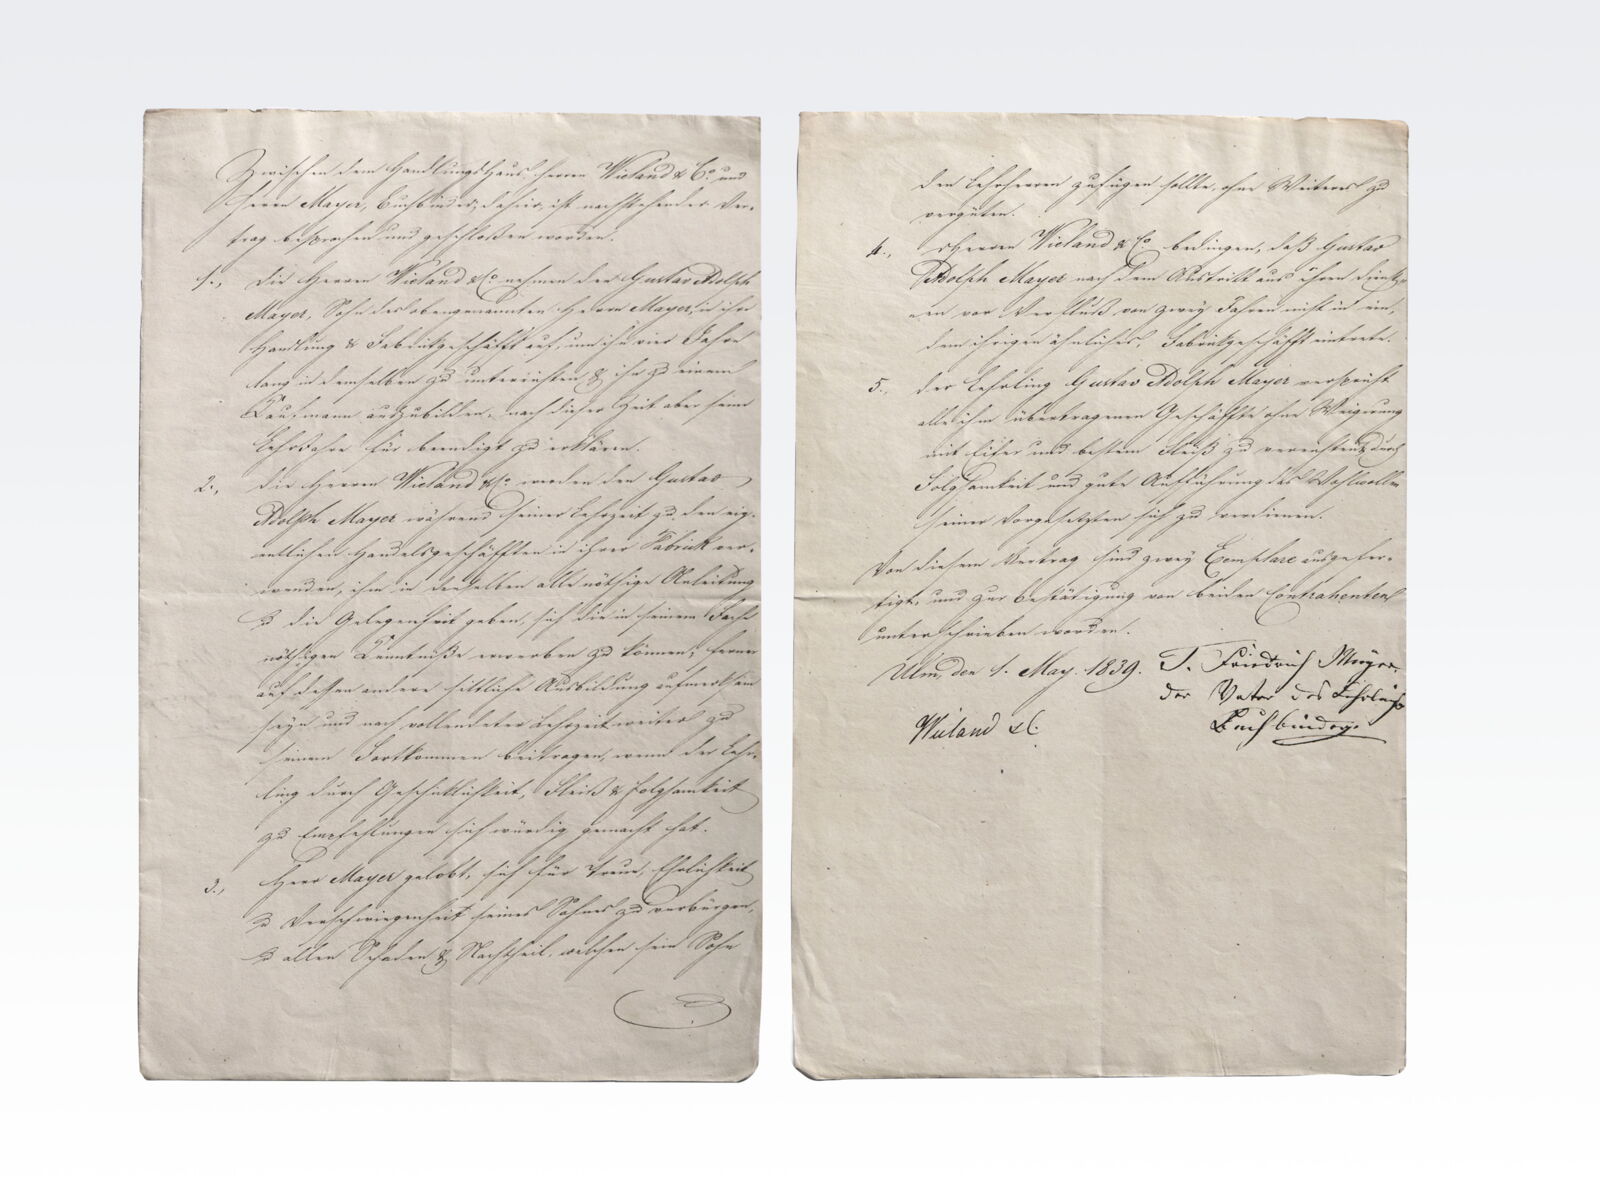 Zwischen dem Handlungshaus Herren Wieland & Co. und
Herrn Mayer, Buchbinder, dahier, ist nachstehender Ver-
trag besprochen und geschloßen worden.
1., Die Herren Wieland & Co. nehmen den Gustav Adolph
Mayer, Sohn des obengenannten Herrn Mayer, in ihr
Handlung & Fabrikgeschäfft auf, um ihn vier Jahre
lang in demselben zu unterrichten & ihn zu einem
Kaufmann auszubilden, nach dieser Zeit aber seine
Lehrjahre für beendigt zu erklären.
2., Die Herren Wieland & Co. werden den Gustav
Adolph Mayer während seiner Lehrzeit zu den eig-
entlichen Handelsgeschäfften in ihrer Fabrick ver-
wenden, ihm in denselben alle nöthige Anleitung
& die Gelegenheit geben, sich die in seinem Fache
nöthigen Kenntniße erwerben zu können; ferner
auf dessen andere sittliche Ausbildung aufmerksam
seyn und nach vollendeter Lehrzeit weiters zu
seinem Fortkommen beitragen, wenn der Lehr-
ling durch Geschiklichkeit, Fleiß & Folgsamkeit
zu Empfehlungen sich würdig gemacht hat.
3., Herr Mayer gelobt, sich für Treue, Ehrlichkeit
& Verschwiegenheit seines Sohnes zu verbürgen,
& allen Schaden & Nachtheil, welchen sein Sohn
den Lehrherren zufügen sollte, ohne Weiteres zu
vergüten.
4., Herren Wieland & Co. bedingen, daß Gustav
Adolph Mayer nach dem Austritt aus ihren Dienst-
en vor Verfluß von zwey Jahren nicht in ein,
dem ihrigen ähnliches, Fabrikgeschäfft eintrete.
5., Der Lehrling Gustav Adolph Mayer verspricht
alle ihm übertragenen Geschäffte ohne Weigerung
mit Eifer und bestem Fleiß zu verrichten & durch
Folgsamkeit und gute Aufführung das Wohlwollen
seiner Vorgesetzten sich zu verdienen.
Von diesem Vertrag sind zwey Exemplare ausgefer-
tigt, und zur Bestätigung von beiden Contrahenten
unterschrieben worden.
Ulm, den 1. May. 1839.
T. Friedrich Mayer
der Vater des Lehrlings
Buchbinder
Wieland & C.